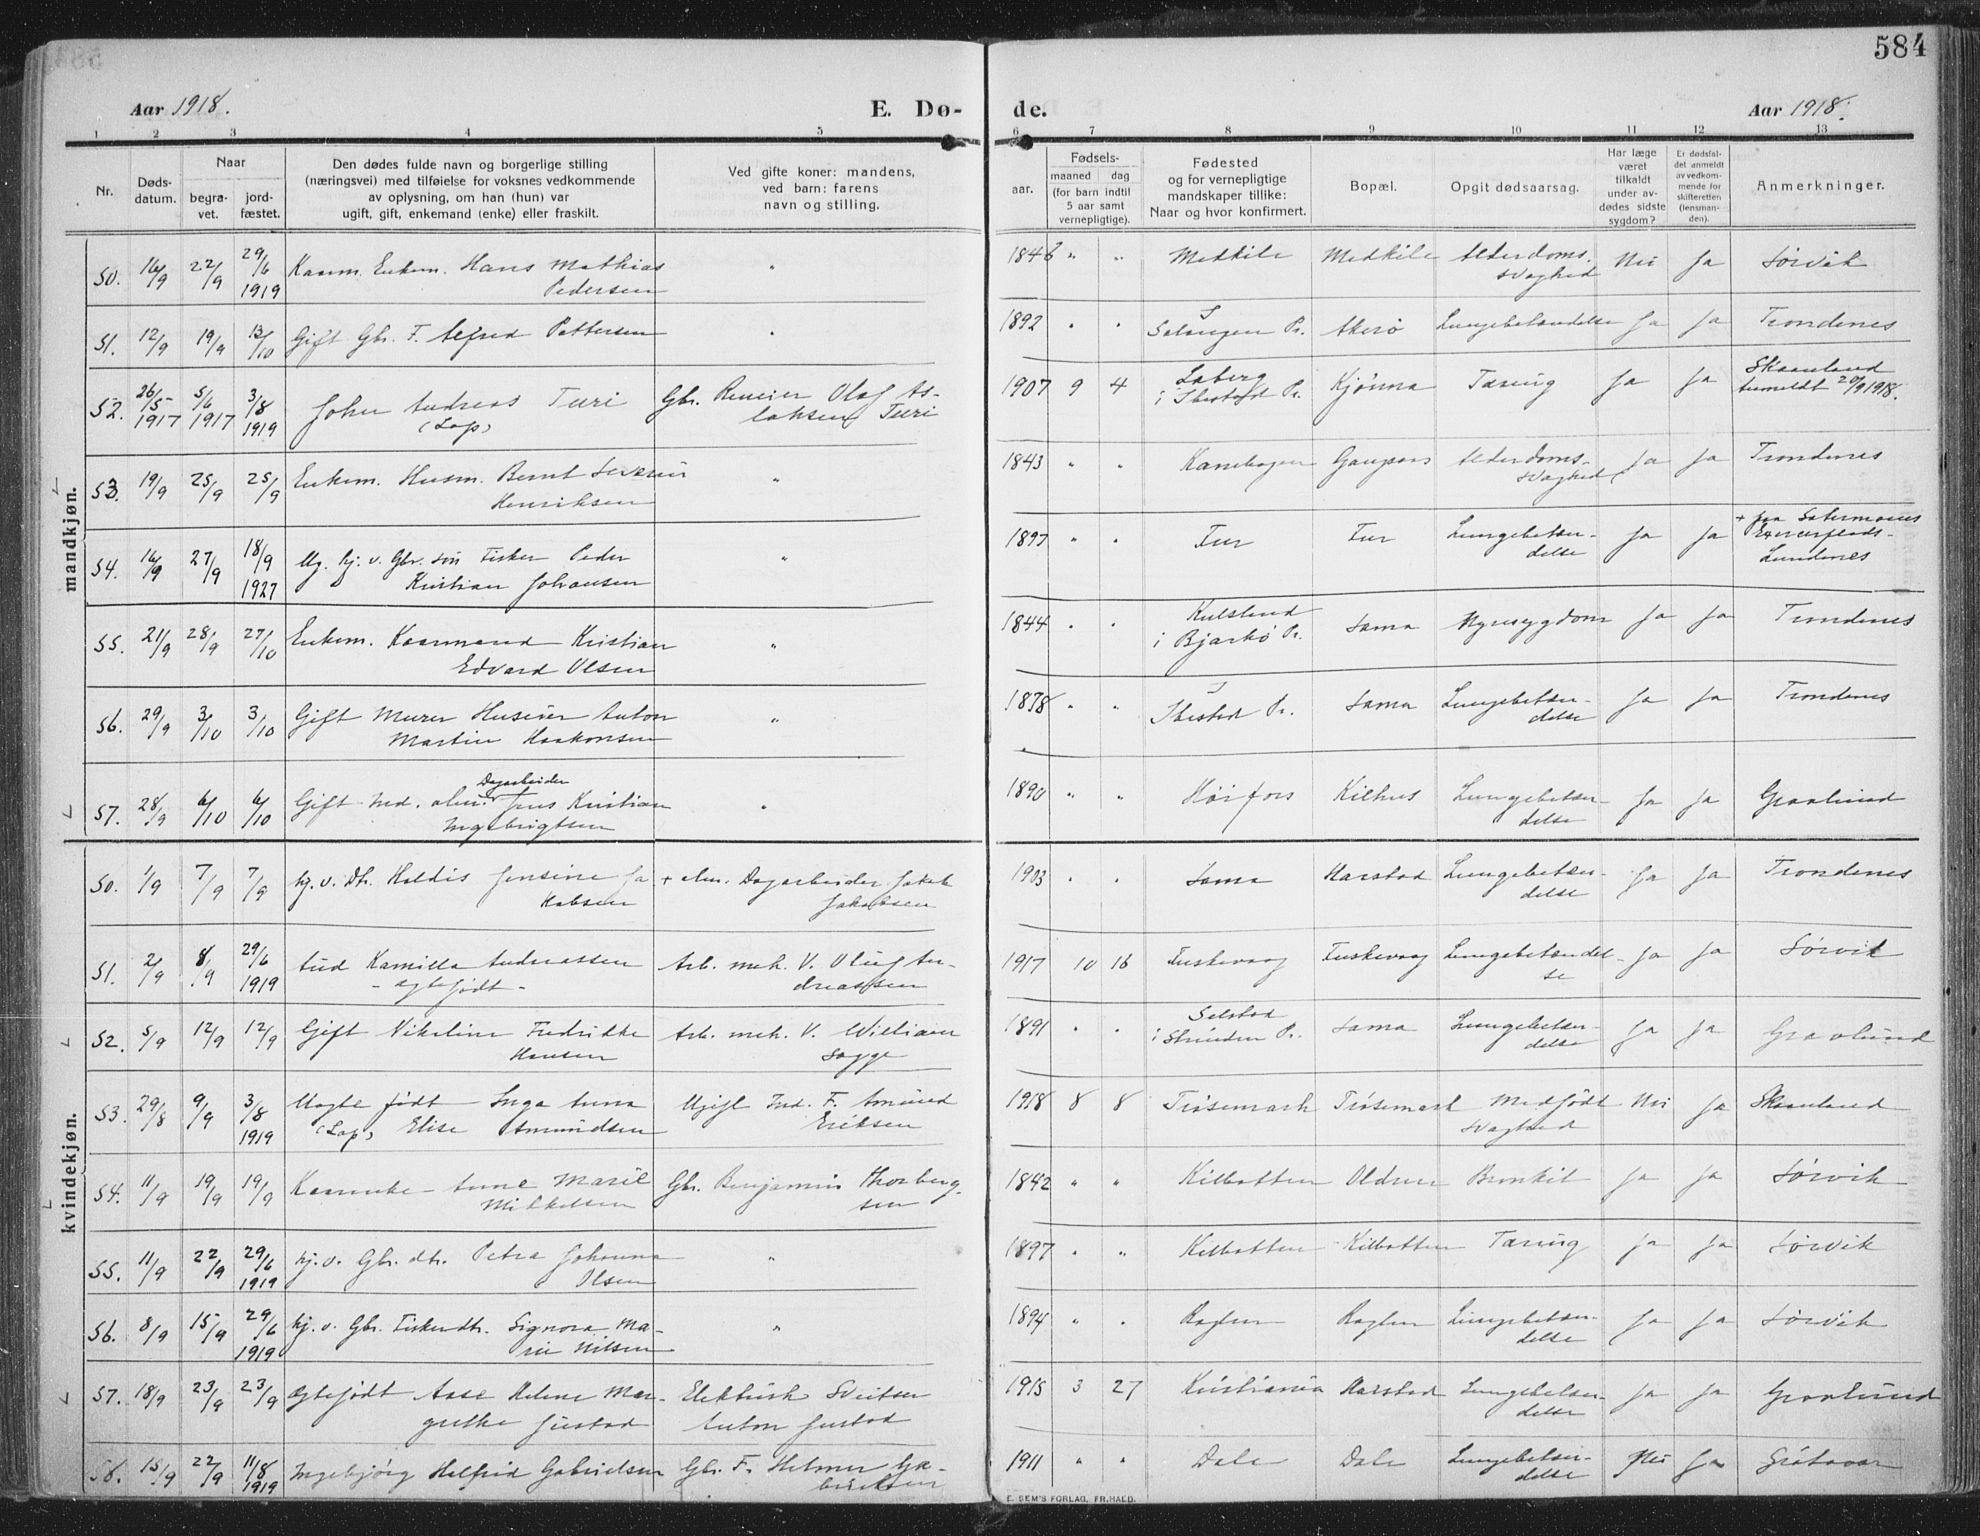 584
Aar 1918.
E. Dø-
de.
Aar 1918.
1 2 3 4 5 6 7 8 9 10 11 12 13
Nr.
Døds-
datum.
Naar
begra-
vet.
jord-
fæstet.
Den dødes fulde navn og borgerlige stilling
(næringsvei) med tilføielse for voksnes vedkommende
av oplysning, om han (hun) var
ugift, gift, enkemand (enke) eller fraskilt.
Ved gifte koner: mandens,
ved barn: farens
navn og stilling.
aar.
Fødsels-
maaned dag
(for barn indtil
5 aar samt
vernepligtige).
Fødested
og for vernepligtige
mandskaper tillike:
Naar og hvor konfirmert.
Bopæl.
Opgit dødsaarsag.
Har læge
været
tilkaldt
under av-
dødes sidste
sygdom?
Er dødsfal-
det anmeldt
av vedkom-
mende for
skifteretten
(lensman-
den).
Anmerkninger.
mandkjøn.
50. 16/9 22/9 29/6 1919 Kaarm. Enkem. Hans Mathias
Pedersen
" 1846 " " Medkile Medkile Alderdoms-
svaghed Nei Ja Sørvik
51. 12/9 19/9 13/10 Gift Gbr. F. Alfred Pettersen " 1892 " " Salangen Pr. Akerø Lungebetændelse Ja Ja Trondenes
52. 26/5 1917 5/6 1917 3/8 1919 John Andreas Turi
(Lap)
Gbr. Reneier Olaf As-
laksen Turi
1907 9 4 Laberg
i Ibestad Pr. Kjønna Tæring Ja Ja Skaanland
Anmeldt 20/9 1918.
53. 19/9 25/9 25/9 Enkem. Husm. Bernt Severin
Henriksen
" 1843 " " Kanebogen Gaupson Alderdoms-
svaghed Ja Ja Trondenes
54. 16/9 27/9 18/9 1927 Ug. hj. v. Gbr. søn Fisker Peder
Kristian Johansen
" 1897 " " Fur Fur Lungebetæn-
delse Ja Ja + paa Setermoens
Exercerplads-
Lundenes
55. 21/9 28/9 27/10 Enkem. Kaarmand Kristian
Edvard Olsen
" 1844 " " Kulslund
i Bjarkø Pr. Sama Nyresygdom Ja Ja Trondenes
56. 29/9 3/10 3/10 Gift Murer Huseier Anton
Martin Haakonsen
" 1878 " " Ibestad Pr. Sama Lungebetæn-
delse Ja Ja Trondenes
57. 28/9 6/10 6/10 Gift Ind. alm. Dagarbeider Jens Kristian
Ingebrigtsen
" 1890 " " Høifors Kilhus Lungebetæn-
delse Ja Ja Graalund
kvindekjøn.
50. 1/9 7/9 7/9 hj. v. Dtr. Haldis Jensine Ja
kobsen
+ alm. Dagarbeider Jakob
Jakobsen
1903 " " Sama Harstad Lungebetæn-
delse Ja Ja Trondenes
51. 2/9 8/9 29/6 1919 Aud Kamilla Andreassen
- ægtefødt -
Arb. mek. V. Oluf An-
dreassen
1917 10 16 Fuskevaag Fuskevaag Lungebetændel-
se Ja Ja Sørvik
52. 5/9 12/9 12/9 Gift Nikoline Fredrikke
Hansen
Arb. mek. V. William
Sagge
1891 " " Selstad
i Strinden Pr. Sama Lungebetæn-
delse Ja Ja Gravlund
53. 29/8 9/9 3/8 1919 Uægte født Inga Anna
(Lap) Elise Amundsen
Ugift Ind. F. Amund
Eriksen
1918 8 8 Trøsemark Trøsemark Medfødt
svaghed Nei Ja Skaanland
54. 11/9 19/9 19/9 Kaarenke Anne Marie
Mikkelsen
Gbr. Benjamin Thorberg-
sen
1842 " " Kilbotten Oldren Bronkit Ja Ja Sørvik
55. 11/9 22/9 29/6 1919 hj. v. Gbr. dtr. Petra Johanna
Olsen
" 1897 " " Kilbotten Kilbotten Tæring Ja Ja Sørvik
56. 8/9 15/9 29/6 1919 hj. v. Gbr. Fiskerdtr. Signora Ma-
rie Nilsen
" 1894 " " Raglen Raglen Lungebetæn-
delse Ja Ja Sørvik
57. 18/9 23/9 23/9 Ægtefødt Aase Helene Mar-
grethe Justad
Elektrisk Sveitser
Anton Justad
1915 3 27 Kristiania Harstad Lungebetæn-
delse Ja Ja Graalund
58. 15/9 22/9 11/8 1919 Ingebjørg Halfrid Gabrielsen Gbr. F. Helmer Ga-
brielsen
1911 " " Dale Dale Lungebetæn-
delse Nei Ja Grøtavær
E. SEM'S FORLAG, FR.HALD.